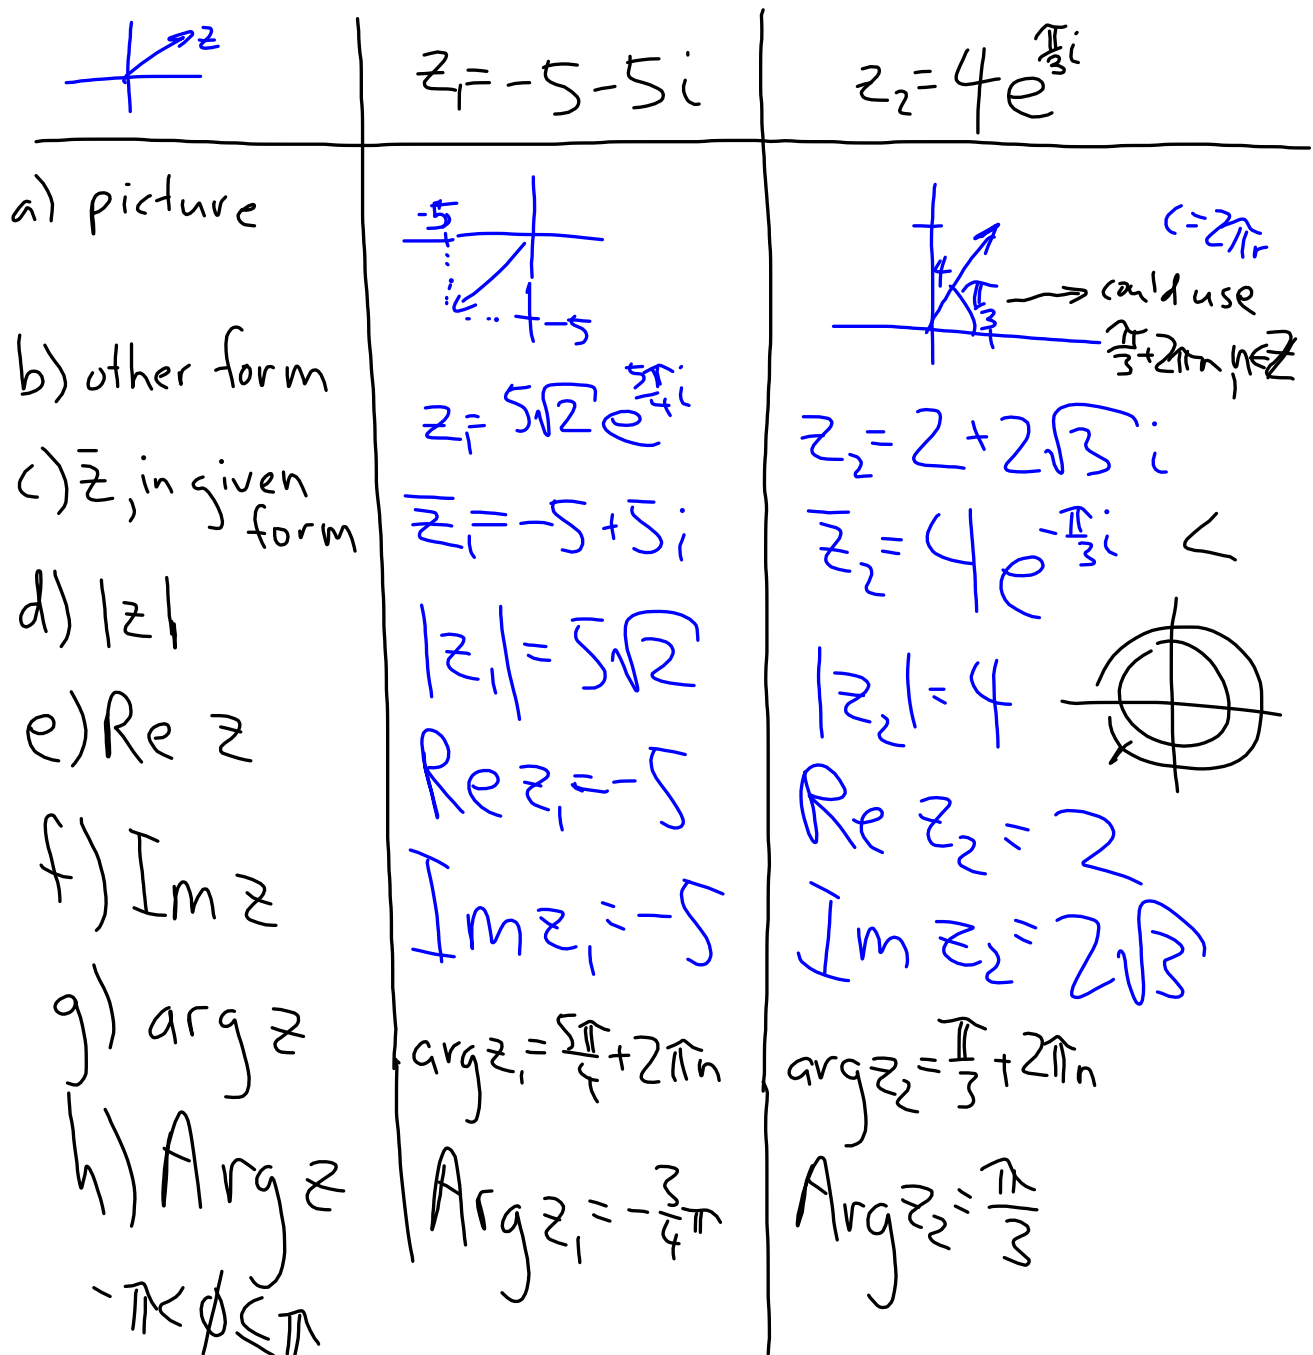 z
z₁ = -5 - 5i
z₂ = 4e^{π/3 i}
a) picture
-5
-5
4
π/3
c = 2πr
could use
π/3 + 2πn, n ∈ Z
b) other form
z₁ = 5√2 e^{5π/4 i}
z₂ = 2 + 2√3 i
c) z̅, in given
form
z̅₁ = -5 + 5i
z̅₂ = 4e^{-π/3 i}
<
d) |z|
|z₁| = 5√2
|z₂| = 4
e) Re z
Re z₁ = -5
Re z₂ = 2
f) Im z
Im z₁ = -5
Im z₂ = 2√3
g) arg z
arg z₁ = 5π/4 + 2πn
arg z₂ = π/3 + 2πn
h) Arg z
Arg z₁ = -3/4 π
Arg z₂ = π/3
-π < ϕ ≤ π